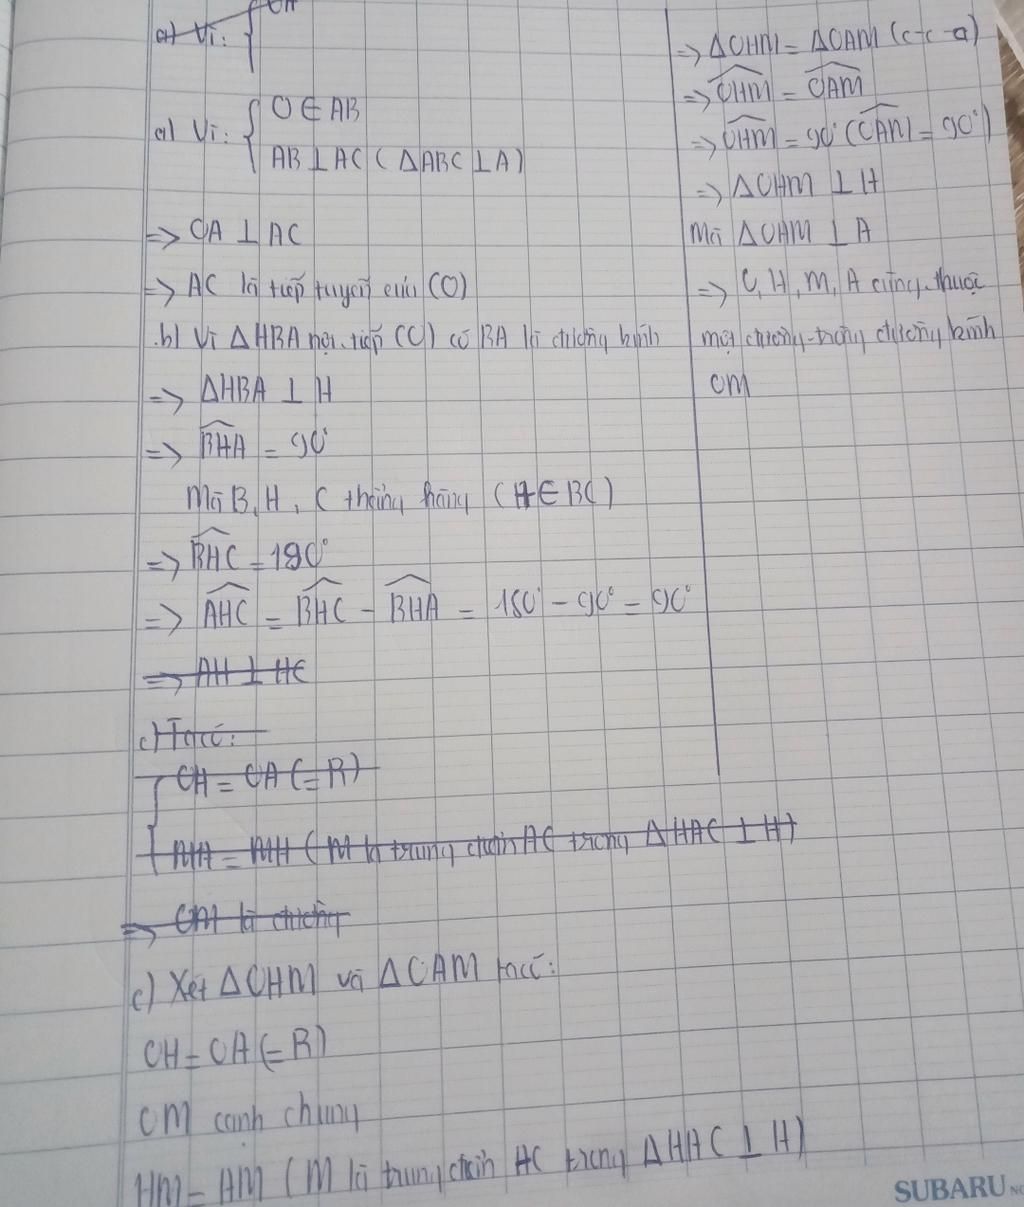 a) Vì: { OH
a) Vì: { O ∈ AB
AB ⊥ AC ( ΔABC ⊥ A)
=> OA ⊥ AC
=> AC là tiếp tuyến của (O)
b) Vì ΔHBA nội tiếp (O) có BA là đường kính
=> ΔHBA ⊥ H
=> BHA = 90°
Mà B, H, C thẳng hàng (H ∈ BC)
=> BHC = 180°
=> AHC = BHC - BHA = 180° - 90° = 90°
=> AH ⊥ HC
c) Ta có:
OH = OA (=R)
MA = MH ( M là trung điểm AC trong ΔHAC ⊥ H)
=> OM là đường
c) Xét ΔOHM và ΔOAM ta có:
OH = OA (=R)
OM cạnh chung
HM = AM ( M là trung điểm AC trong ΔHAC ⊥ H)
=> ΔOHM = ΔOAM (c-c-c)
=> OHM = OAM
=> OHM = 90° (OAM = 90°)
=> ΔOHM ⊥ H
Mà ΔOAM ⊥ A
=> O, H, M, A cùng thuộc
một đường tròn đường kính
OM
SUBARU